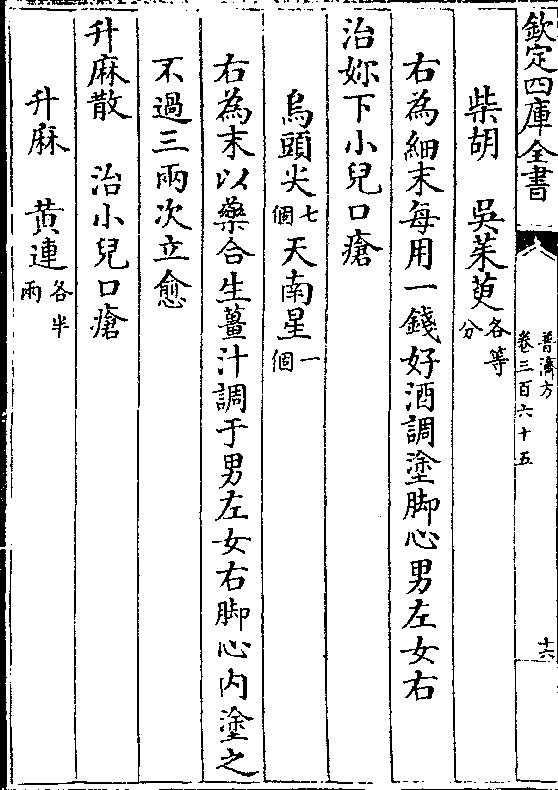 欽定四庫全書
普濟方
卷三百六十五
十六
柴胡　吳茱萸各等分
右為細末每用一錢好酒調塗脚心男左女右
治妳下小兒口瘡
烏頭尖七個天南星一個
右為末以藥合生薑汁調于男左女右脚心內塗之
不過三兩次立愈
升麻散　治小兒口瘡
升麻　黃連各半兩